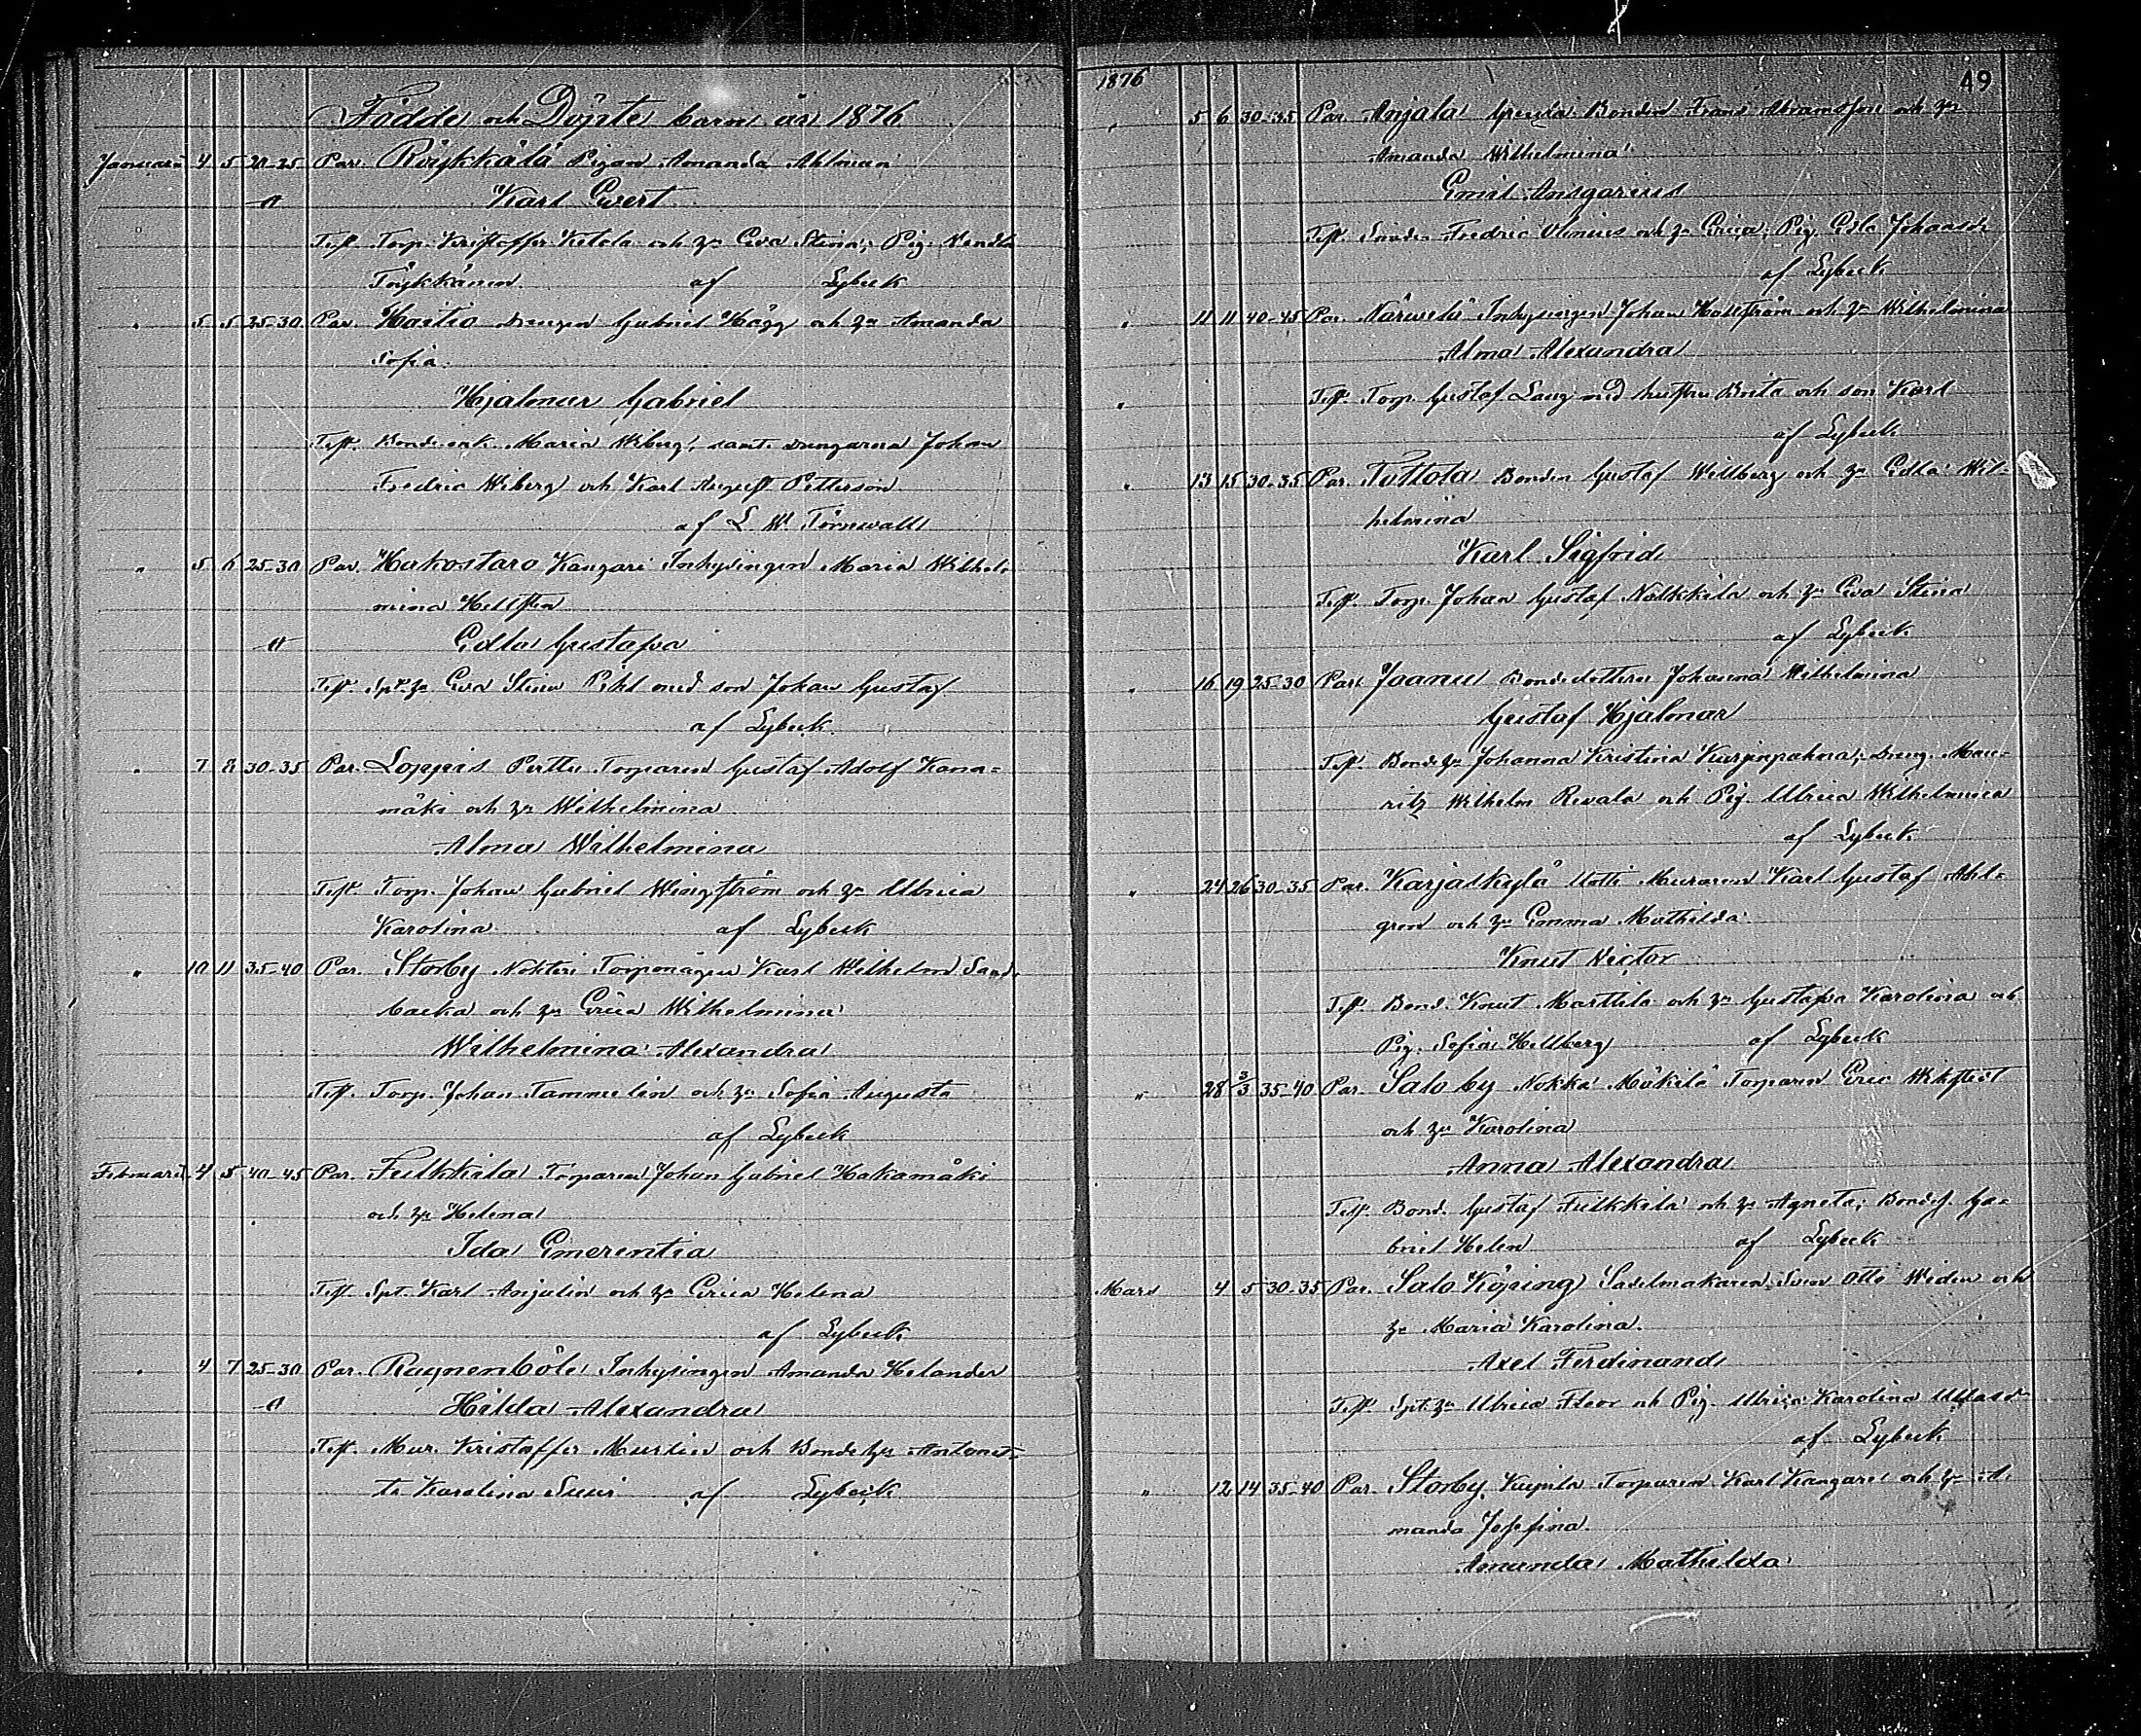 Födde och Döpte barn år 1876
Januari 4 5 20-25 Par. Röykkälä Pigan Amanda Ahlman
Karl Evert
Test. Torp. Kristoffer Ketola och h:u Eva Stina; Pig. Vendla
Töykkänen af Lybeck
" 5 5 25-30 Par. Haitio Drengen Gabriel Hägg och h:u Amanda
Sofia.
Hjalmar Gabriel
Test. Bonde enk. Maria Wiberg, samt drengarna Johan
Fredric Wiberg och Karl August Petterson
af L W Törnwall
" 5 6 25-30 Par. Hakostaro Kangari Inhysingen Maria Wilhel-
mina Hellsten
Edla Gustafva
Test. h:u Eva Stina Pihl med son Johan Gustaf
af Lybeck
" 7 8 30-35 Par. Loppis Perttu Torparen Gustaf Adolf Kana-
mäki och h:u Wilhelmina
Alma Wilhelmina
Test. Torp. Johan Gabriel Wingström och h:u Ulrica
Karolina af Lybeck
" 10 11 35-40 Par. Storby Nokteri Torpmågen Karl Wilhelm Sand-
backa och h:u Erica Wilhelmina
Wilhelmina Alexandra
Test. Torp. Johan Tammelin och h:u Sofia Augusta
af Lybeck
Februari 4 5 40-45 Par. Fulkkila Torparen Johan Gabriel Hakamäki
och h:u Helena
Ida Emerentia
Test. Spt. Karl Anjalin och h:u Erica Helena
af Lybeck
" 4 7 25-30 Par. Ragnenböle Inhysingen Amanda Helander
Hilda Alexandra
Test. Mur. Kristoffer Murlin och Bonde h:u Antonet-
ta Karolina Susi af Lybeck
1876 49
" 5 6 30-35 Par. Anjala Bonden Frans Abramsson och h:u
Amanda Wilhelmina
Emil Ansgarius
Test. Fredric Ulenius och h:u Erica; Pig. Edla Johansdr
af Lybeck
" 11 11 40-45 Par. Närvelä Inhysingen Johan Hallström och h:u Wilhelmina
Alma Alexandra
Test. Torp. Gustaf Lang med hustru Brita och son Karl
af Lybeck
" 13 15 30-35 Par. Tottola Bonden Gustaf Willberg och h:u Edla Wil-
helmina
Karl Sigfrid
Test. Torp. Johan Gustaf Nälkkilä och h:u Eva Stina
af Lybeck
" 16 19 25-30 Par. Jaanu Bondedottern Johanna Wilhelmina
Gustaf Hjalmar
Test. Bonde h:u Johanna Kristina Kurjenpahna; Dreng. Mau-
ritz Wilhelm Rivala och Pig. Ulrica Wilhelmina
af Lybeck
" 24 26 30-35 Par. Karjaskylä Uotti Muraren Karl Gustaf Ahl-
gren och h:u Emma Mathilda
Knut Victor
Test. Bond. Knut Marttila och h:u Gustafva Karolina och
Pig. Sofia Hellberg af Lybeck
" 28 3/3 35-40 Par. Salo by Nokka Mäkilä Torparen Eric Wikstedt
och h:u Karolina
Anna Alexandra
Test. Bond. Gustaf Fulkkila och h:u Agneta; Bondes. Ga-
briel Helen af Lybeck
Mars 4 5 30-35 Par. Salo Köping Sadelmakaren Sven Otto Widen och
h:u Maria Karolina.
Axel Ferdinand
Test. Spt. h:u Ulrica Floor och Pig. Ulrica Karolina
af Lybeck
" 12 14 35-40 Par. Storby Torparen Karl Kangare och h:u A-
manda Josefina.
Amanda Mathilda